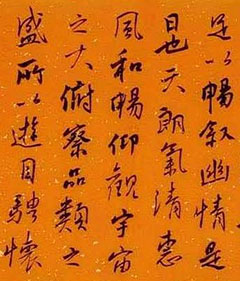 足以暢叙幽情是
日也天朗氣清惠
風和暢仰觀宇宙
之大俯察品類之
盛所以遊目騁懷